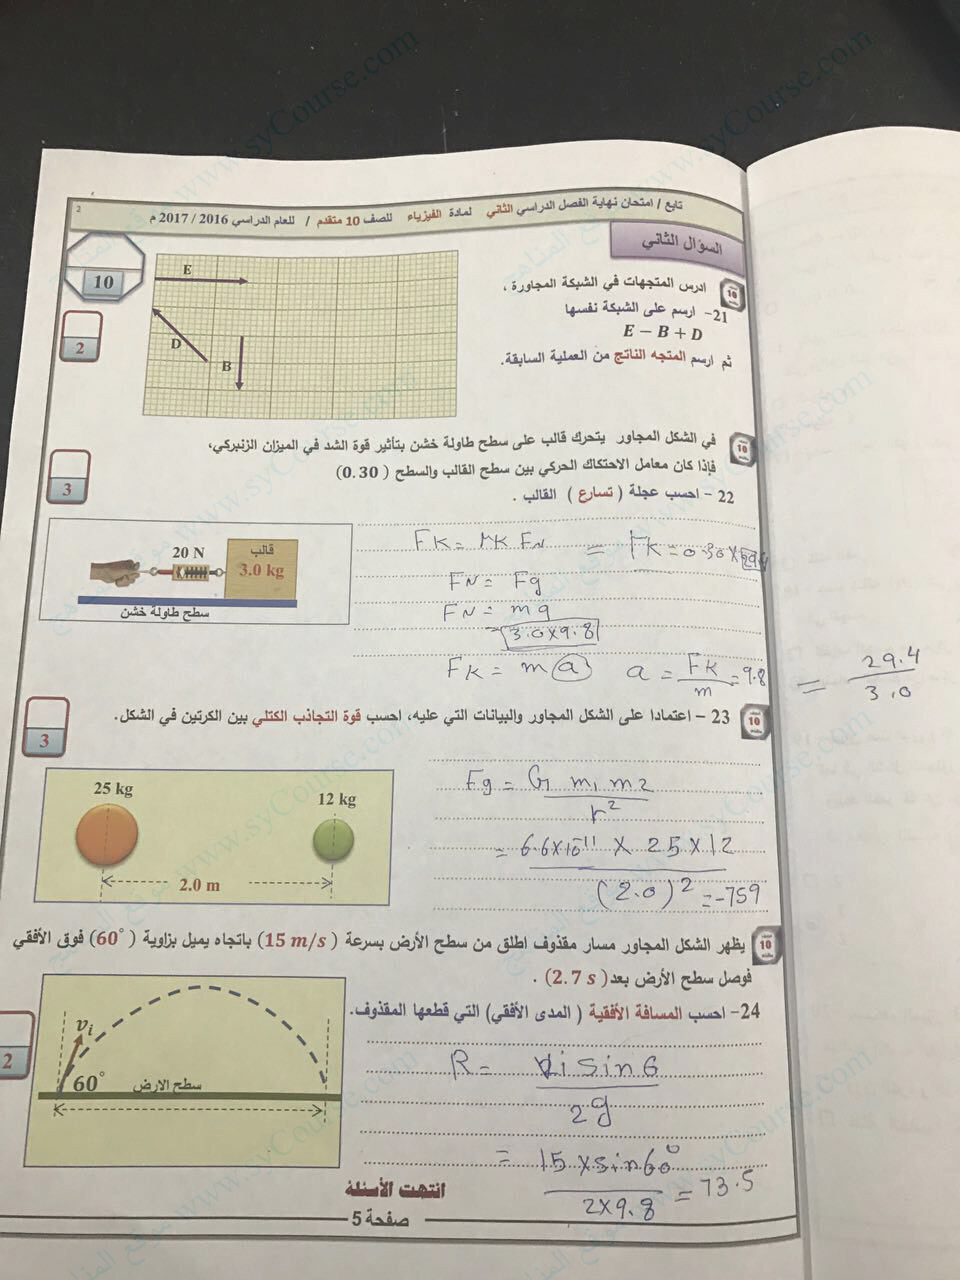 تابع / امتحان نهاية الفصل الدراسي الثاني لمادة الفيزياء للصف 10 متقدم / للعام الدراسي 2016 / 2017 م
2
السؤال الثاني
10
ادرس المتجهات في الشبكة المجاورة ،
21- ارسم على الشبكة نفسها
E – B + D
ثم ارسم المتجه الناتج من العملية السابقة.
2
E
D
B
في الشكل المجاور يتحرك قالب على سطح طاولة خشن بتأثير قوة الشد في الميزان الزنبركي،
فإذا كان معامل الاحتكاك الحركي بين سطح القالب والسطح ( 0.30)
22 – احسب عجلة ( تسارع ) القالب .
3
20 N
قالب
3.0 kg
سطح طاولة خشن
FK = MK FN = FK = 0.30 × 29.4
FN = Fg
FN = mg
= 3.0 × 9.8
FK = m a a = FK / m = 9.8
= 29.4 / 3.0
23 – اعتمادا على الشكل المجاور والبيانات التي عليه، احسب قوة التجاذب الكتلي بين الكرتين في الشكل.
3
25 kg
12 kg
2.0 m
Fg = G m1 m2
r²
= 6.6×10⁻¹¹ × 25 × 12
(2.0)² = -759
يظهر الشكل المجاور مسار مقذوف اطلق من سطح الأرض بسرعة (15 m/s) باتجاه يميل بزاوية (60°) فوق الأفقي
فوصل سطح الأرض بعد( 2.7 s) .
24- احسب المسافة الأفقية ( المدى الأفقي) التي قطعها المقذوف.
2
vi
60°
سطح الارض
R = vi sin6
2g
= 15 × sin60°
2×9.8 = 73.5
انتهت الأسئلة
صفحة 5
موقع المناهج www.syCourse.com